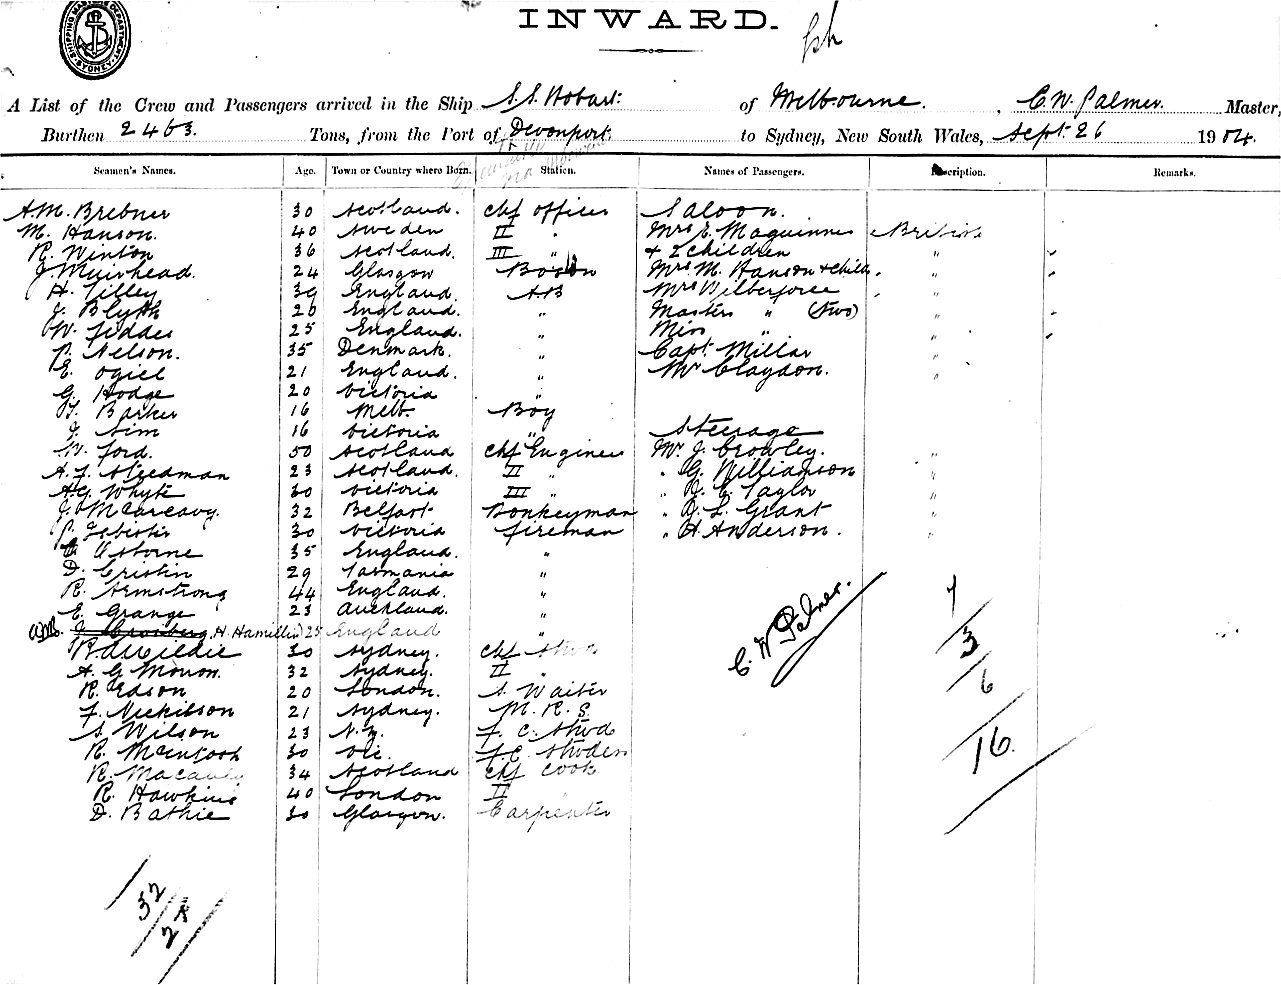 SHIPPING MASTER'S DEPARTMENT SYDNEY
INWARD.
A List of the Crew and Passengers arrived in the Ship S.S. Hobart of Melbourne. C.W. Palmer. Master,
Burthen 2463. Tons, from the Port of Devonport to Sydney, New South Wales, Sept. 26 1904.
Seamen's Names. Age. Town or Country where Born. Station. Names of Passengers. Description. Remarks.
A.M. Brebner 30 Scotland. Chf Officer Saloon.
M. Hanson. 40 Sweden II " Mrs E. Maguinnes British
R. Winton 36 Scotland. III " + 2 children "
J. Muirhead. 24 Glasgow Bosun Mrs M. Hanson + Child "
H. Tilley 39 England. AB Mrs Wilberforce "
J. Blyth 26 England. " Masters " (two) "
W. Fiddes 25 England. " Miss " "
P. Nelson. 35 Denmark. " Capt. Millar "
E. Ogill 21 England. " Mr Claydon. "
G. Hodge 20 Victoria "
Barker 16 Melb. Boy
J. Sim 16 Victoria " Steerage
W. Ford. 50 Scotland Chf Engineer Mr J. Crowley.
A. Steedman 23 Scotland. II " " G. Williamson "
A.G. Whyte 30 Victoria III " " Taylor "
J. McCareavy. 32 Belfast Donkeyman " Grant "
P. 30 Victoria Fireman " H. Anderson. "
Osborne 35 England. "
D. Cristin 29 Tasmania "
R. Armstrong 44 England. "
E. Grange 23 Auckland. "
J. Cronberg H. Hamillin 25 England "
30 Sydney. Chf Stwd
A. G. Monon. 32 Sydney. II "
R. Edson 20 London. S. Waiter
F. Nickilson 21 Sydney. M. R. S.
S. Wilson 23 N.Z. F. C. Stwd
R. McIntosh 30 Vic. F.C. Stwdess
R. Macauley 34 Scotland Chf Cook
R. Hawkins 40 London II "
D. Bathie 30 Glasgow. Carpenter
C. W. Palmer.
7
3
6
16.
32
28